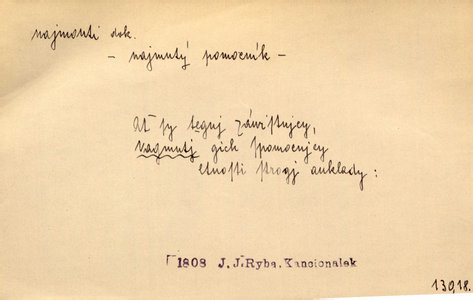 najmouti dok.
– najmutý pomocník –
Ať sy tegnj záwistnjcy,
nagmutj gich spomocnjcy
ctnosti strogj auklady:
1808 J. J. Ryba, Kancionálek
13918.